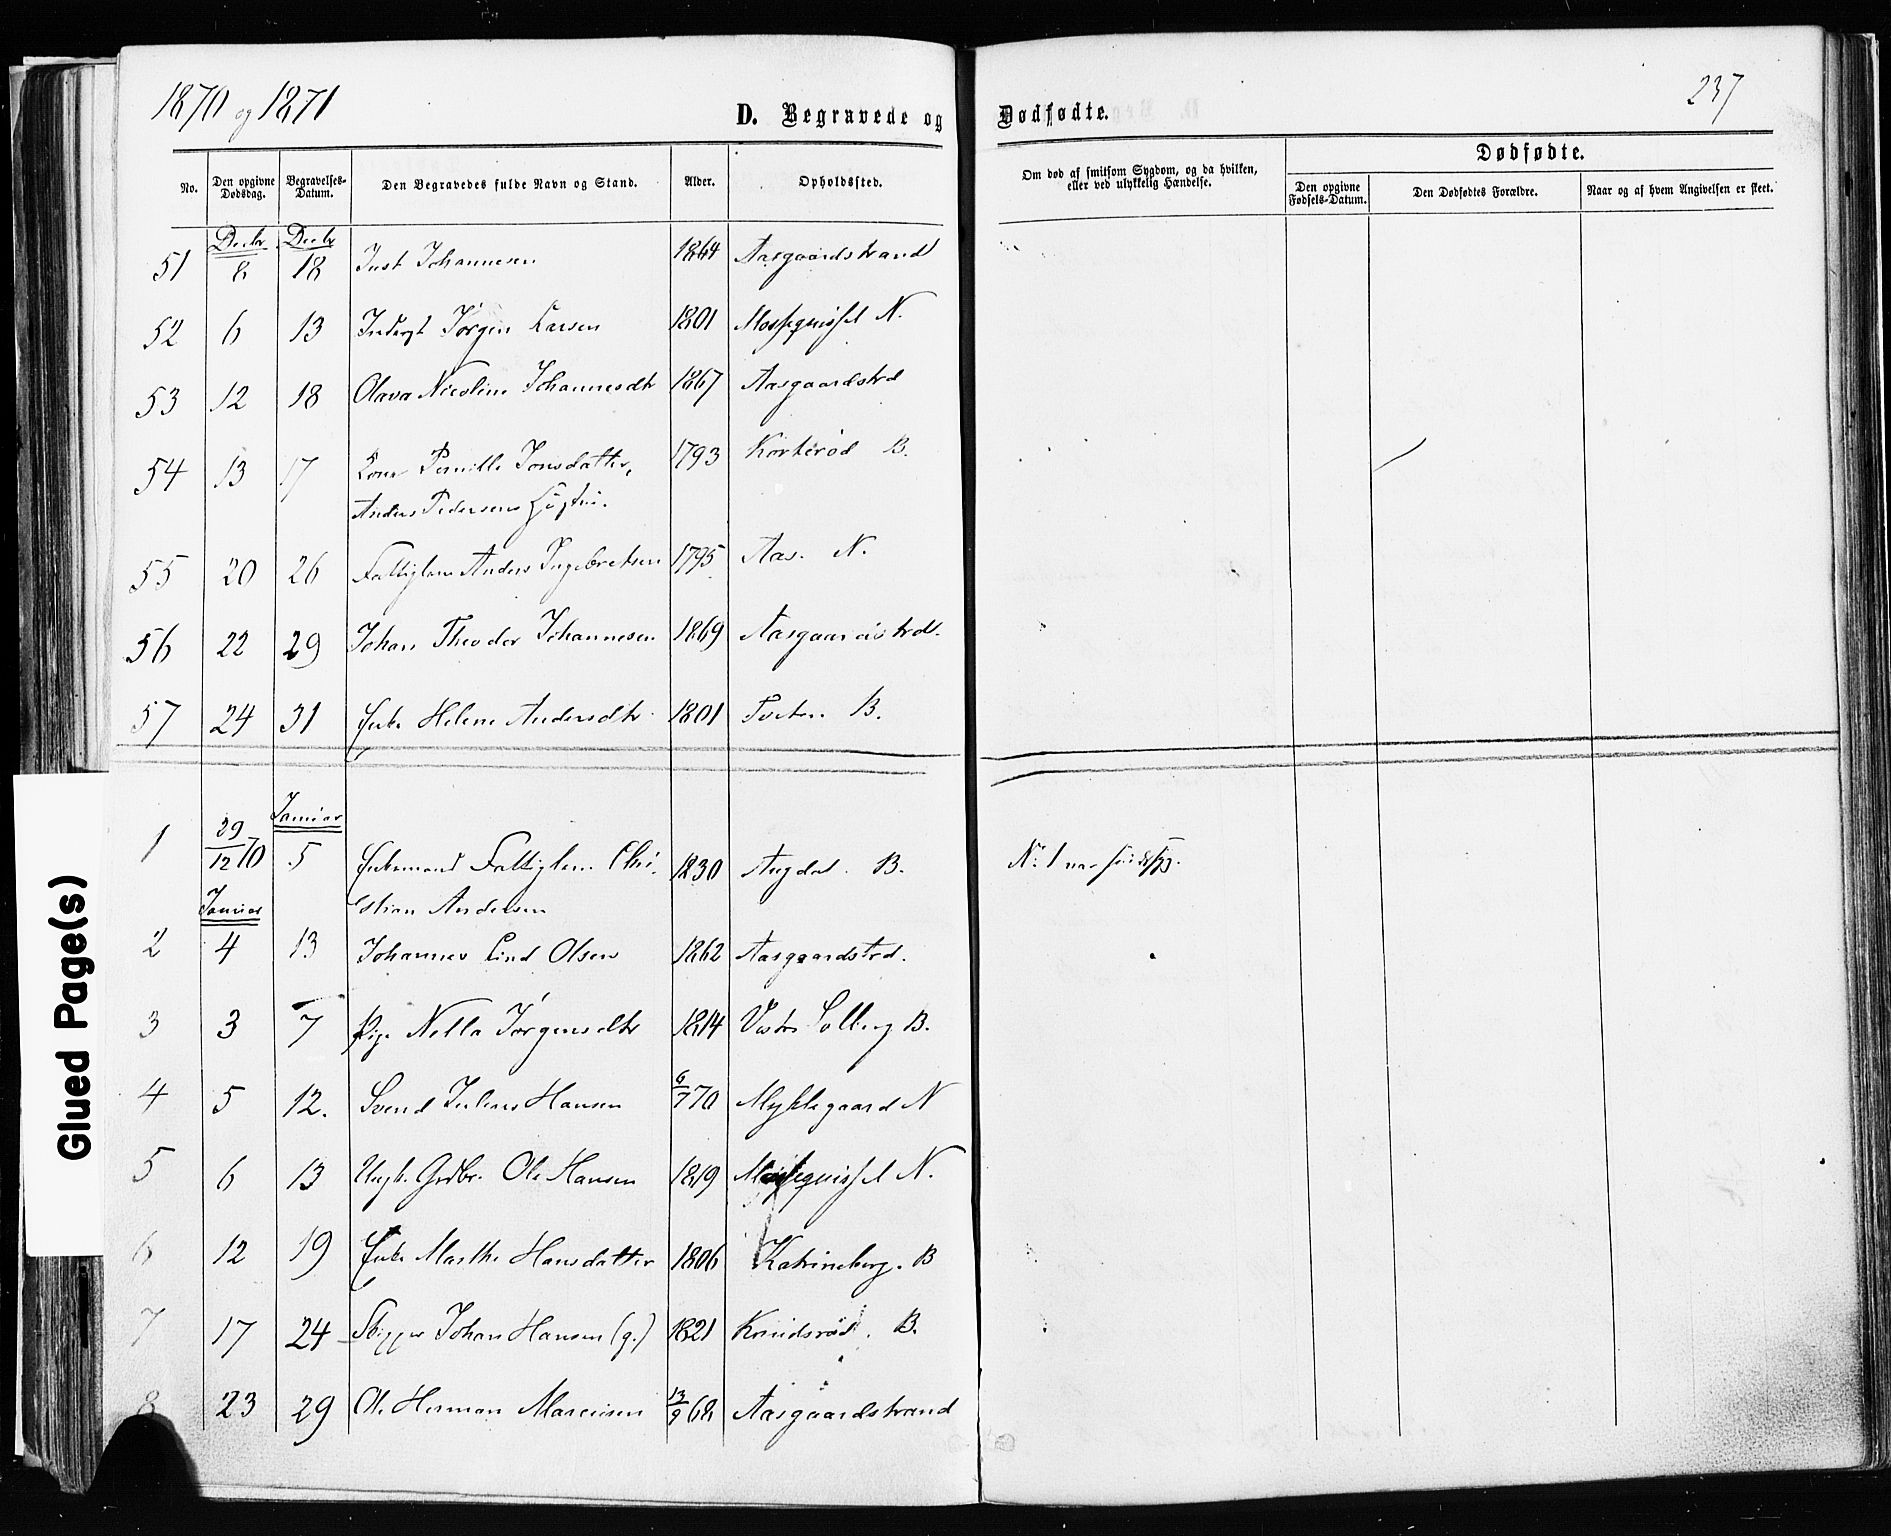 1870 og 1871
D. Begravede og Dødfødte.
237
No.
Den opgivne Dødsdag.
Begravelses-Datum.
Den Begravedes fulde Navn og Stand.
Alder.
Opholdssted.
Om død af smitsom Sygdom, og da hvilken, eller ved ulykkelig Hændelse.
Dødfødte.
Den opgivne Fødsels-Datum.
Den Dødfødtes Forældre.
Naar og af hvem Angivelsen er skeet.
Decbr Decbr
51 8 18 Just Johannesen 1864 Aasgaardstrand
52 6 13 Jørgen Larsen 1801 N.
53 12 18 Olava Nicoline Johannesdtr 1867 Aasgaardstrd
54 13 17 Pernille Jonsdatter, 1793 Korterød B.
Anders Pedersens
55 20 26 Fattiglem Anders Ingebretsen 1795 Aas. N.
56 22 29 Johan Theodor Johannesen 1869 Aasgaardstrd.
57 24 31 Enke Helene Andersdtr 1801 B.
Januar
1 29/12 70 5 Enkemand Fattiglem Chri- 1830 Augdal. B. No. 1 var
stian Andersen
Januar
2 4 13 Johannes Lind Olsen 1862 Aasgaardstrd.
3 3 7 Pige Nella Jørgensdtr 1814 Solberg B.
4 5 12. Svend Julius Hansen 6/7 70 Myklegaard N
5 6 13 Ungk. Grdbr. Ole Hansen 1819 N.
6 12 19 Enke Marthe Hansdatter 1806 Katrineberg. B
7 17 24 Skipper Johan Hansen (g.) 1821 Knudsrød. B.
8 23 29 Ole Herman Marcusen 13/9 68 Aasgaardstrand
Glued Page(s)